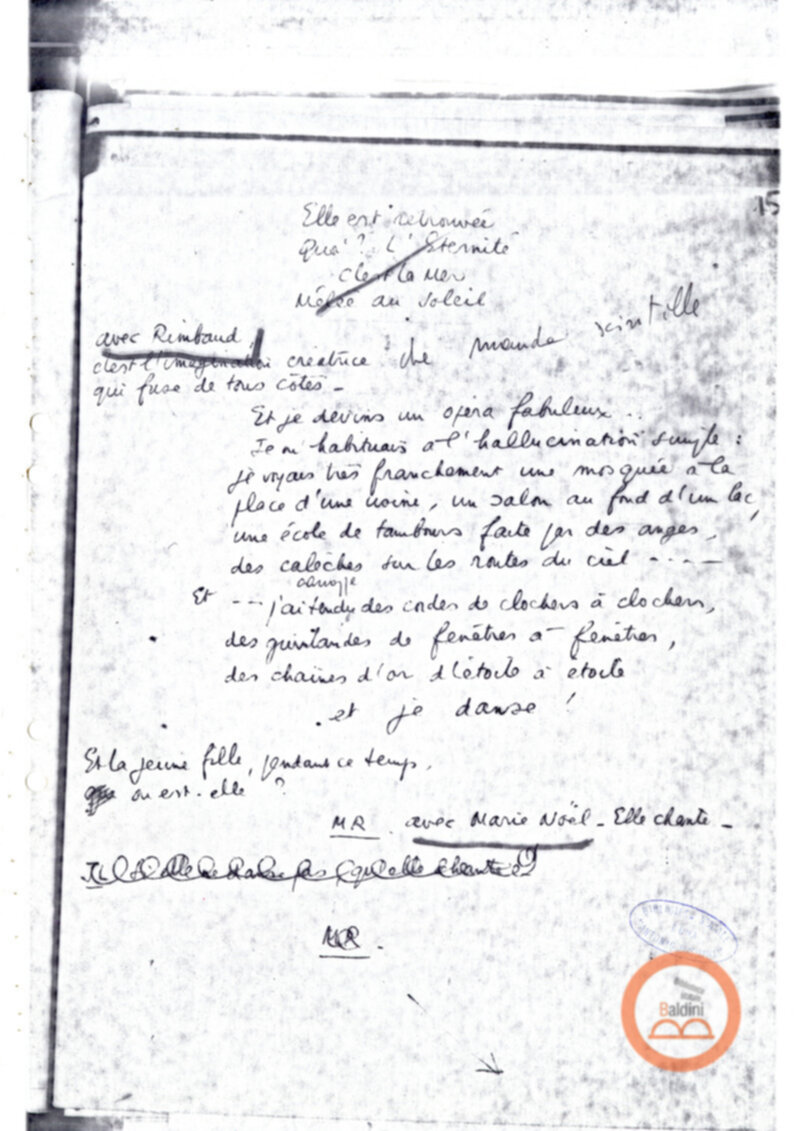 15
Elle est retrouvée
Quoi ? L'Eternité
C'est la Mer
Mêlée au Soleil
avec Rimbaud,
c'est l'imagination créatrice
qui fuse de tous côtés –
Et je devins un opéra fabuleux ..
Je m'habituais à l'hallucination simple :
je voyais très franchement une mosquée à la
place d'une usine, un salon au fond d'un lac,
une école de tambours faite par des anges,
des calèches sur les routes du ciel ----
Et -- j'ai tendu des cordes de clochers à clochers,
des guirlandes de fenêtres à fenêtres,
des chaînes d'or d'étoile à étoile
et je danse !
Et la jeune fille, pendant ce temps,
où est-elle ?
MR avec Marie Noël – Elle chante –
MR.
Biblioteca
Baldini